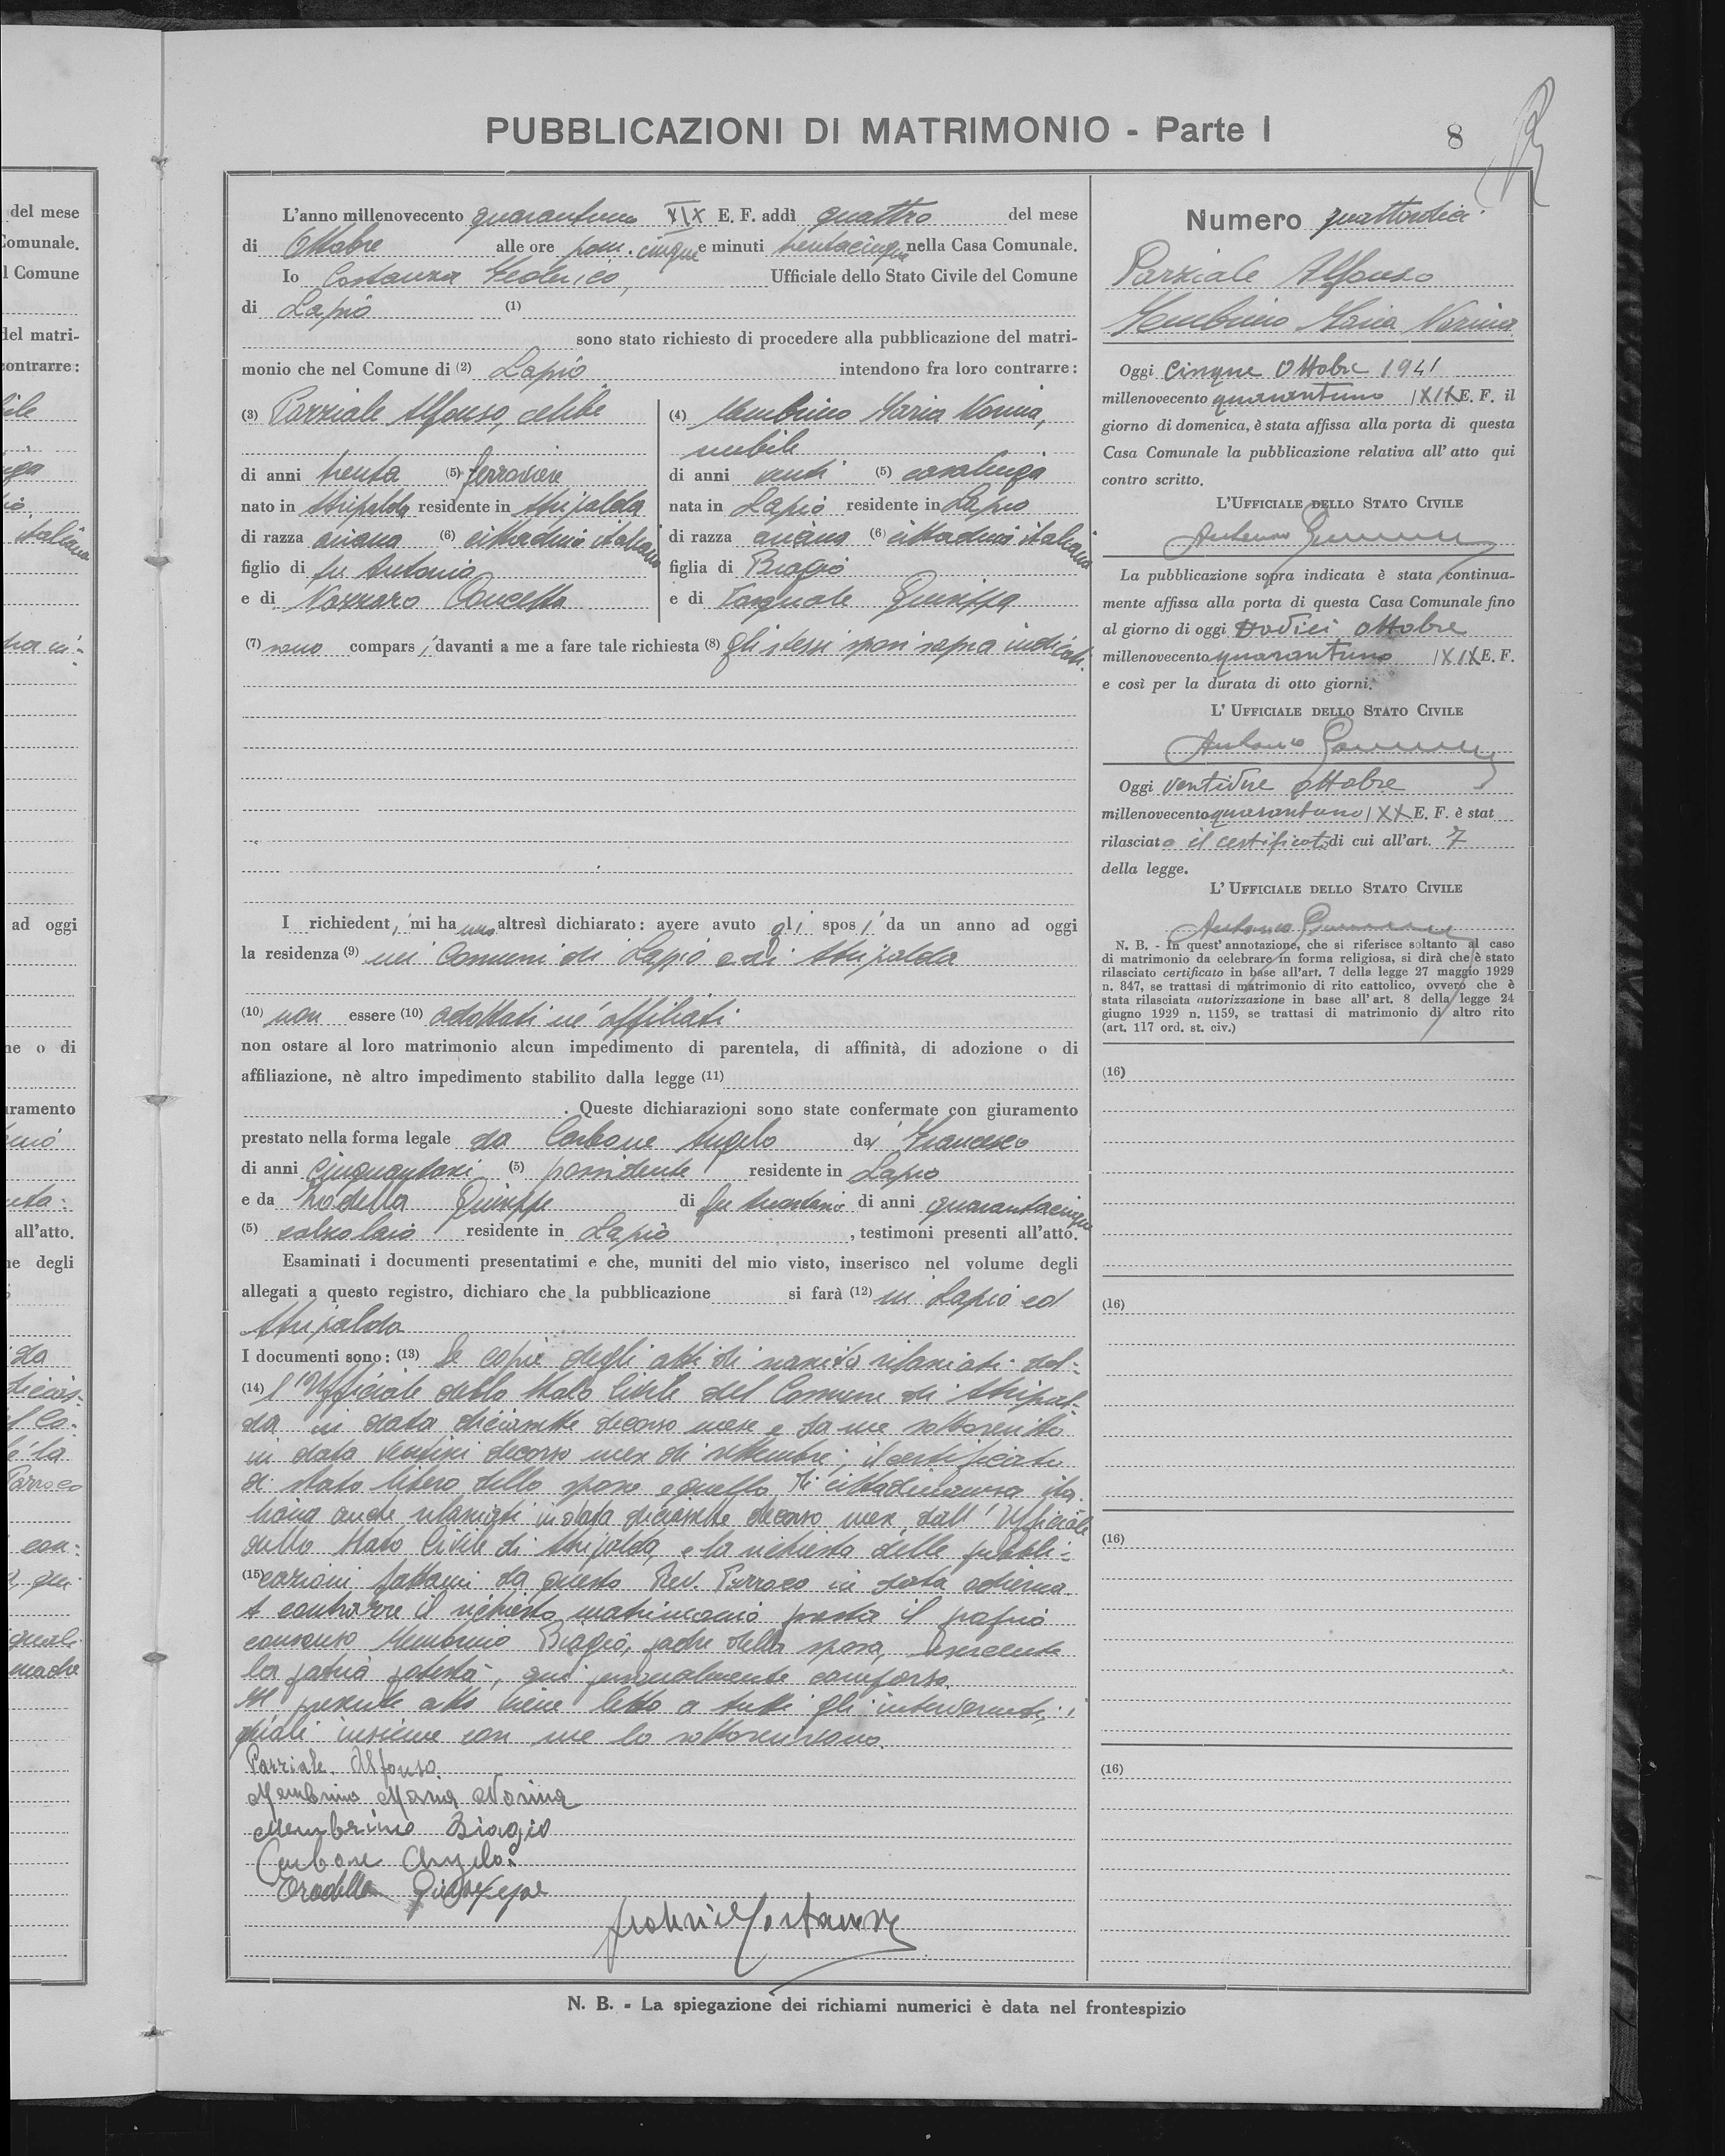 PUBBLICAZIONI DI MATRIMONIO - Parte I
8
L'anno millenovecento quarantuno XIX E. F. addì quattro del mese
di Ottobre alle ore pom. cinque e minuti trentacinque nella Casa Comunale.
Io Costanza Federico, Ufficiale dello Stato Civile del Comune
di Lapio (1)
sono stato richiesto di procedere alla pubblicazione del matri-
monio che nel Comune di (2) Lapio intendono fra loro contrarre:
(3) Parziale Alfonso, celibe
di anni trenta (5) ferroviere
nato in Atripalda residente in Atripalda
di razza ariana (6) cittadino italiano
figlio di fu Antonio
e di Nazzaro Concetta
(4) Membrino Maria Norina,
nubile
di anni venti (5) casalinga
nata in Lapio residente in Lapio
di razza ariana (6) cittadina italiana
figlia di Biagio
e di Pasquale Giuseppa
(7) sono comparsi, davanti a me a fare tale richiesta (8) gli stessi sposi sopra indicati.
I richiedenti, mi hanno altresì dichiarato: avere avuto gli sposi da un anno ad oggi
la residenza (9) nei Comuni di Lapio e di Atripalda
(10) non essere (10) adottati nè affiliati
non ostare al loro matrimonio alcun impedimento di parentela, di affinità, di adozione o di
affiliazione, nè altro impedimento stabilito dalla legge (11)
. Queste dichiarazioni sono state confermate con giuramento
prestato nella forma legale da Carbone Angelo di Francesco
di anni cinquantasei (5) possidente residente in Lapio
e da Giuseppe di fu di anni quarantacinque
(5) calzolaio residente in Lapio, testimoni presenti all'atto.
Esaminati i documenti presentatimi e che, muniti del mio visto, inserisco nel volume degli
allegati a questo registro, dichiaro che la pubblicazione si farà (12) in Lapio ed
Atripalda
I documenti sono: (13) Le copie degli atti di nascita rilasciati dal-
(14) l'Ufficiale dello Stato Civile del Comune di Atripal-
da in data diciassette decorso mese e da me sottoscritto
in data ventisei decorso mese di settembre; il certificato
di stato libero dello sposo e quello di cittadinanza ita-
liana anche rilasciati in data diciassette decorso mese, dall'Ufficiale
dello Stato Civile di Atripalda, e la richiesta delle pubbli-
(15) cazioni fattami da questo Rev. Parroco in data odierna.
A contrarre il richiesto matrimonio presta il proprio
consenso Membrino Biagio, padre della sposa, esercente
la patria potestà, qui personalmente comparso.
Il presente atto viene letto a tutti gli intervenuti, i
quali insieme con me lo sottoscrivono.
Parziale Alfonso
Membrino Maria Norina
Membrino Biagio
Carbone Angelo
Giuseppe
Federico Costanza
N. B. - La spiegazione dei richiami numerici è data nel frontespizio
Numero quattordici
Parziale Alfonso
Membrino Maria Norina
Oggi cinque Ottobre 1941
millenovecento quarantuno XIX E. F. il
giorno di domenica, è stata affissa alla porta di questa
Casa Comunale la pubblicazione relativa all' atto qui
contro scritto.
L'UFFICIALE DELLO STATO CIVILE
Antonio
La pubblicazione sopra indicata è stata continua-
mente affissa alla porta di questa Casa Comunale fino
al giorno di oggi Dodici ottobre
millenovecento quarantuno XIX E. F.
e così per la durata di otto giorni.
L' UFFICIALE DELLO STATO CIVILE
Antonio
Oggi ventidue ottobre
millenovecento quarantuno XX E. F. è stat
rilasciato il certificato di cui all'art. 7
della legge.
L' UFFICIALE DELLO STATO CIVILE
Antonio
N. B. - In quest' annotazione, che si riferisce soltanto al caso
di matrimonio da celebrare in forma religiosa, si dirà che è stato
rilasciato certificato in base all'art. 7 della legge 27 maggio 1929
n. 847, se trattasi di matrimonio di rito cattolico, ovvero che è
stata rilasciata autorizzazione in base all' art. 8 della legge 24
giugno 1929 n. 1159, se trattasi di matrimonio di altro rito
(art. 117 ord. st. civ.)
(16)
(16)
(16)
(16)